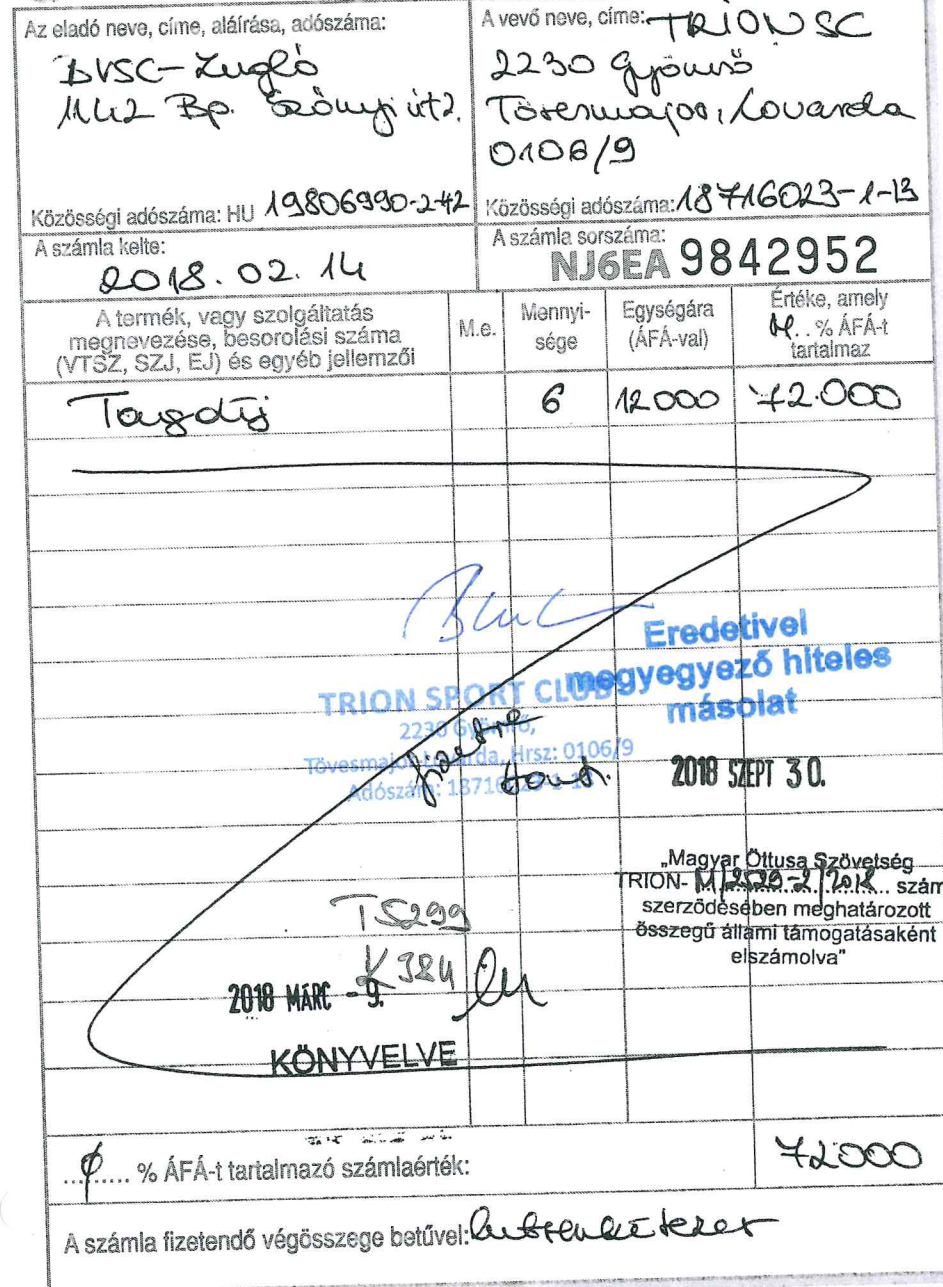 Az eladó neve, címe, aláírása, adószáma:
BVSC-Zugló
1142 Bp. Szőnyi út 2.
Közösségi adószáma: HU 19806990-2-42
A vevő neve, címe: TRION SC
2230 Gyömrő
Tövesmajor, Lovarda
0106/9
Közösségi adószáma: 18716023-1-13
A számla kelte:
2018. 02. 14
A számla sorszáma:
NJ6EA 9842952
A termék, vagy szolgáltatás
megnevezése, besorolási száma
(VTSZ, SZJ, EJ) és egyéb jellemzői
M.e.
Mennyi-
sége
Egységára
(ÁFÁ-val)
Értéke, amely
.. % ÁFÁ-t
tartalmaz
Tagdíj 6 12.000 72.000
Eredetivel
megyegyező hiteles
másolat
TRION SPORT CLUB
2230 Gyömrő,
Tövesmajor Lovarda, Hrsz: 0106/9
Adószám:
fizetve
2018 SZEPT 30.
„Magyar Öttusa Szövetség
TRION- M/2529-2/2018... szám
szerződésében meghatározott
összegű állami támogatásaként
elszámolva”
T5299
K384
2018 MÁRC - 9.
KÖNYVELVE
..... % ÁFÁ-t tartalmazó számlaérték: 72000
A számla fizetendő végösszege betűvel: hetvenkétezer